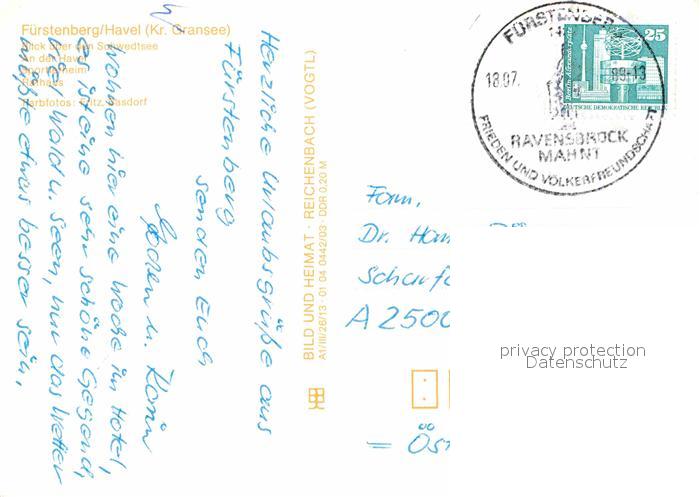 Fürstenberg/Havel (Kr. Gransee)
Blick über den Schwedtsee
An der Havel
Sportlerheim
Rathaus
Farbfotos:
Herzliche Urlaubsgrüße aus
Fürstenberg
senden Euch
u.
Wohnen hier eine Woche im Hotel,
es ist eine sehr schöne Gegend,
viel Wald u. Seen, nur das Wetter
müßte etwas besser sein.
BILD UND HEIMAT · REICHENBACH (VOGTL)
A1/III/26/13 · 01 04 0442/03 · DDR 0,20 M
FÜRSTENBER
18.07.
89-13
RAVENSBRÜCK
MAHNT
FRIEDEN UND VÖLKERFREUNDSCHAFT
25
Berlin, Alexanderplatz
DEUTSCHE DEMOKRATISCHE REP
Fam.
Dr.
A 2500
= Öst
privacy protection
Datenschutz